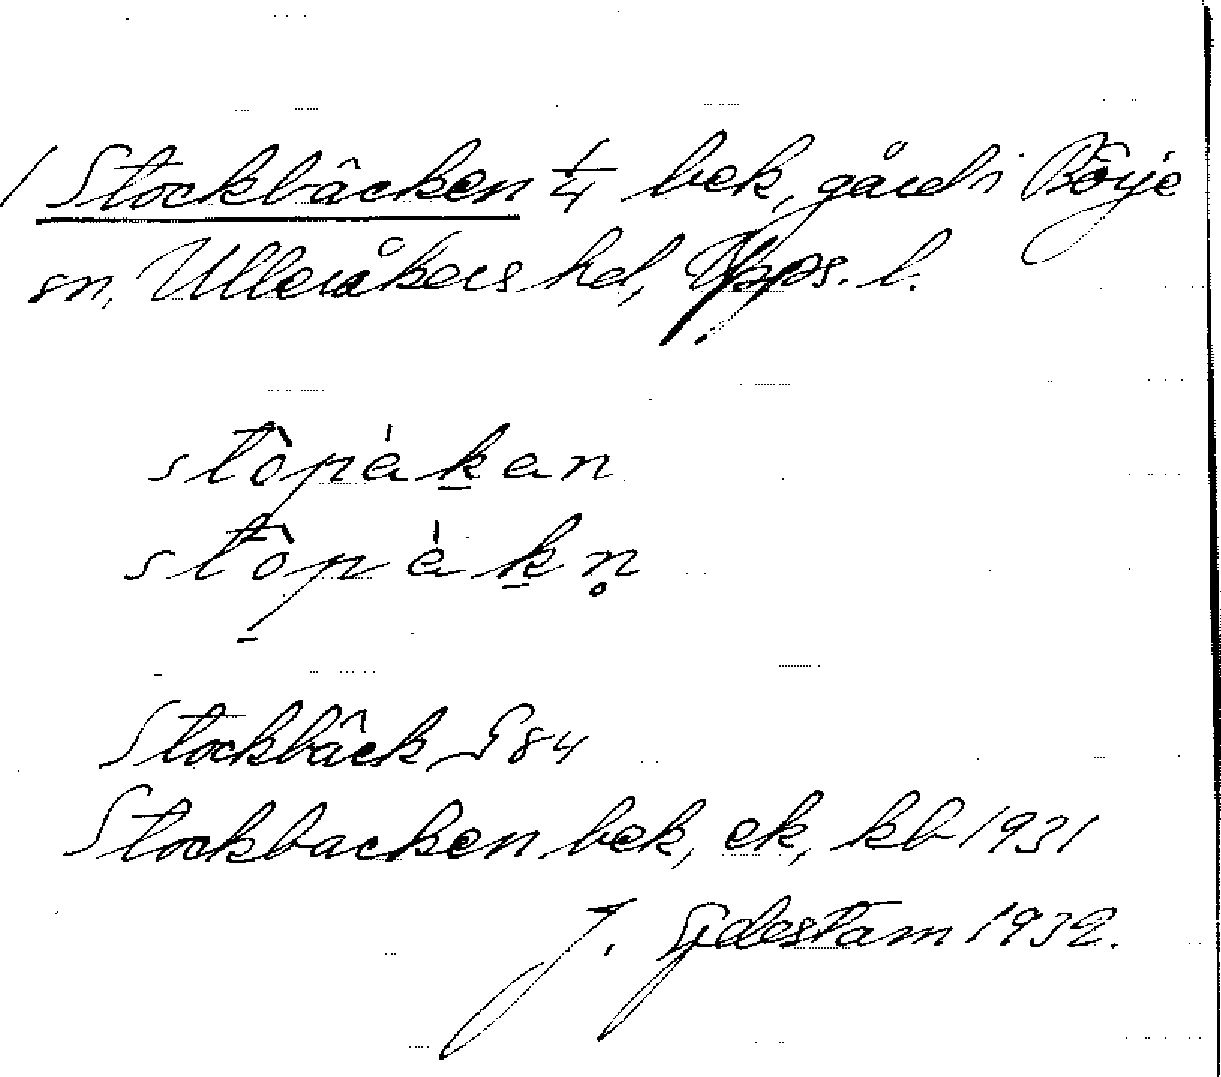 1 Stockbäcken 1/4 bek, gård i Börje
sn, Ulleråkers hd, Upps. l.
stòpákan
stòpákn̥
Stockbäck G 84
Stockbacken bek, ek, kb 1931
J. Sjdestam 1932.